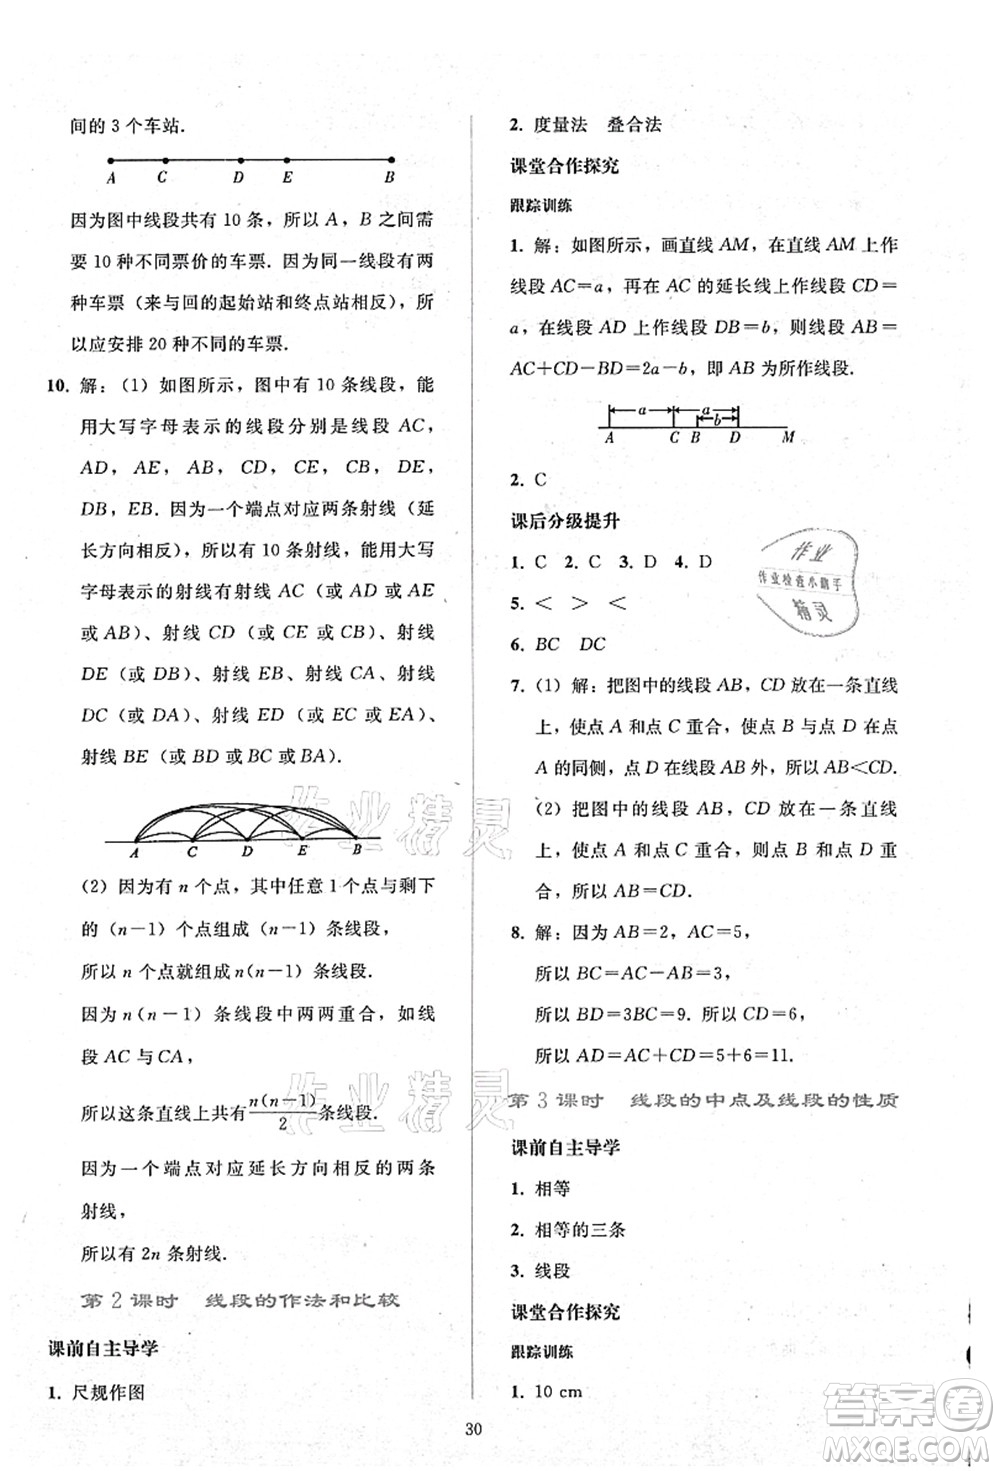 间的 3 个车站.
A C D E B
因为图中线段共有 10 条，所以 A，B 之间需
要 10 种不同票价的车票. 因为同一线段有两
种车票（来与回的起始站和终点站相反），所
以应安排 20 种不同的车票.
10. 解：（1）如图所示，图中有 10 条线段，能
用大写字母表示的线段分别是线段 AC，
AD，AE，AB，CD，CE，CB，DE，
DB，EB. 因为一个端点对应两条射线（延
长方向相反），所以有 10 条射线，能用大写
字母表示的射线有射线 AC（或 AD 或 AE
或 AB）、射线 CD（或 CE 或 CB）、射线
DE（或 DB）、射线 EB、射线 CA、射线
DC（或 DA）、射线 ED（或 EC 或 EA）、
射线 BE（或 BD 或 BC 或 BA）.
A C D E B
（2）因为有 n 个点，其中任意 1 个点与剩下
的（n－1）个点组成（n－1）条线段，
所以 n 个点就组成 n(n－1) 条线段.
因为 n(n－1) 条线段中两两重合，如线
段 AC 与 CA，
所以这条直线上共有 n(n－1)/2 条线段.
因为一个端点对应延长方向相反的两条
射线，
所以有 2n 条射线.
第 2 课时　线段的作法和比较
课前自主导学
1. 尺规作图
2. 度量法　叠合法
课堂合作探究
跟踪训练
1. 解：如图所示，画直线 AM，在直线 AM 上作
线段 AC＝a，再在 AC 的延长线上作线段 CD＝
a，在线段 AD 上作线段 DB＝b，则线段 AB＝
AC＋CD－BD＝2a－b，即 AB 为所作线段.
a a
b
A C B D M
2. C
课后分级提升
1. C 2. C 3. D 4. D
5. ＜ ＞ ＜
6. BC DC
7.（1）解：把图中的线段 AB，CD 放在一条直线
上，使点 A 和点 C 重合，使点 B 与点 D 在点
A 的同侧，点 D 在线段 AB 外，所以 AB＜CD.
（2）把图中的线段 AB，CD 放在一条直线
上，使点 A 和点 C 重合，则点 B 和点 D 重
合，所以 AB＝CD.
8. 解：因为 AB＝2，AC＝5，
所以 BC＝AC－AB＝3，
所以 BD＝3BC＝9. 所以 CD＝6，
所以 AD＝AC＋CD＝5＋6＝11.
第 3 课时　线段的中点及线段的性质
课前自主导学
1. 相等
2. 相等的三条
3. 线段
课堂合作探究
跟踪训练
1. 10 cm
30
作业精灵
作业精灵
作业
作业检查小助手
精灵
答案圈
MXQE.COM